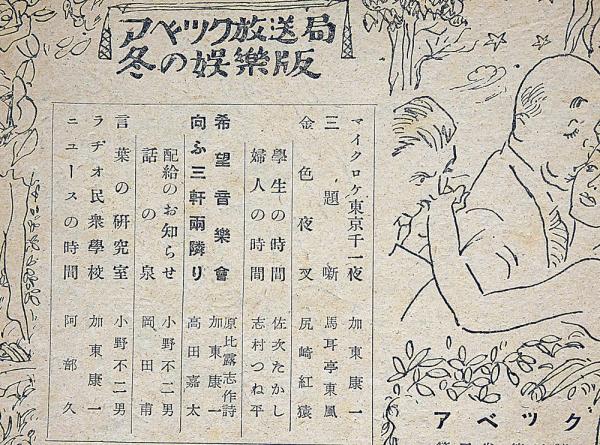 アベック放送局
冬の娯樂版
マイクロケ東京千一夜 加東康一
三題噺 馬耳亭東風
金色夜叉 尻崎紅猿
學生の時間 佐次たかし
婦人の時間 志村つね平
希望音樂會 原比露志作詩 加東康一
向ふ三軒兩隣り 高田嘉太
配給のお知らせ 小野不二男
話の泉 岡田甫
言葉の研究室 小野不二男
ラヂオ民衆學校 加東康一
ニュースの時間 阿部久
アベック